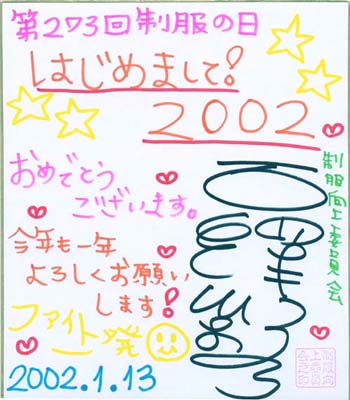 第273回制服の日
はじめまして!
2002
おめでとう
ございます。
今年も一年
よろしくお願い
します!
ファイト一発
2002.1.13
制服向上委員会